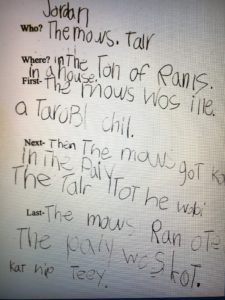 Jordan
Who? The mows. Talr
Where? in The Ton of Ranis.
In a house.
First- The mows wos ille.
a TaroBl chil.
Next- Then The mows goT Ka
in The Paly
The Talr THoT he wobi
Last- The mows Ran oTe
The paly wos hoT.
Kat nip Teey.